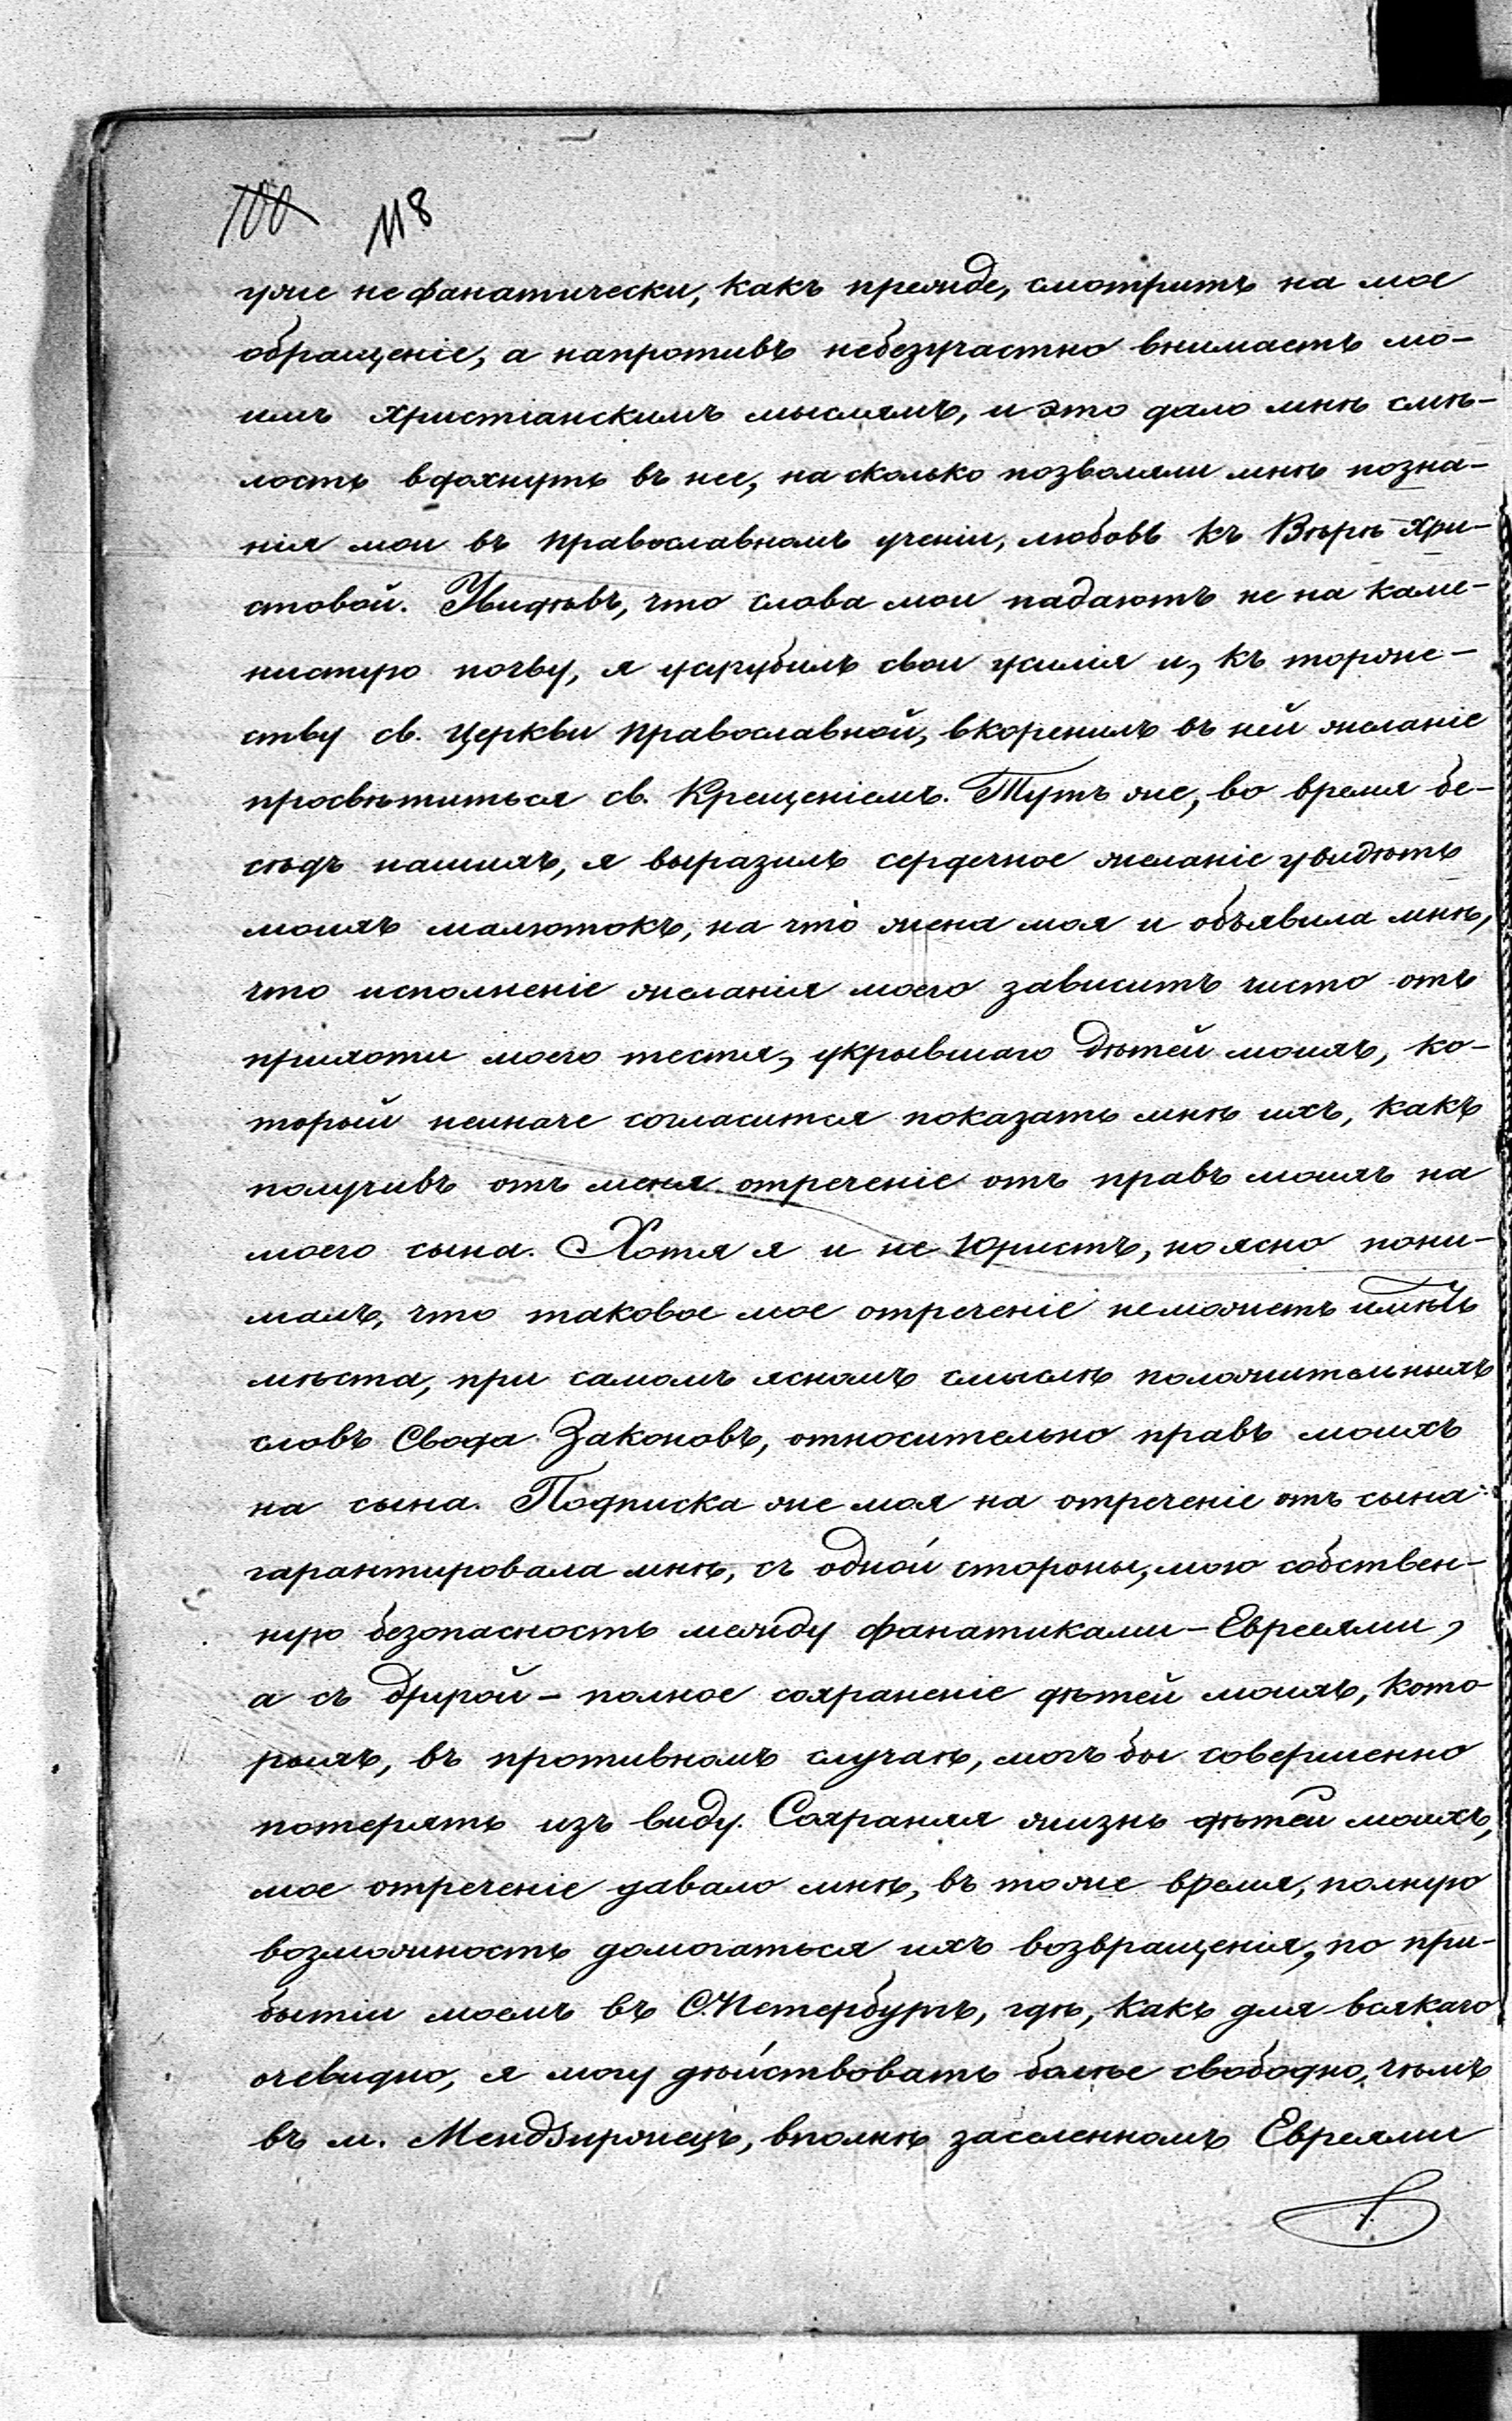 100 118
уже не фанатически, какъ прежде, смотритъ на мое
обращеніе, а напротивъ небезучастно внимаетъ мо-
имъ христіанскимъ мыслямъ, и это дало мнѣ смѣ-
лость вдохнуть въ нее, на сколько позволяли мнѣ позна-
нія мои въ православномъ ученіи, любовь къ Вѣрѣ Хри-
стовой. Увидѣвъ, что слова мои падаютъ не на каме-
нистую почву, я усугубилъ свои усилія и, къ торже-
ству св. Церкви Православной, вкоренилъ въ ней желаніе
просвѣтиться св. Крещеніемъ. Тутъ же, во время бе-
сѣдъ нашихъ, я выразилъ сердечное желаніе увидѣть
моихъ малютокъ, на что жена моя и объявила мнѣ,
что исполненіе желанія моего зависитъ чисто отъ
прихоти моего тестя, укрывшаго дѣтей моихъ, ко-
торый неиначе согласится показать мнѣ ихъ, какъ
получивъ отъ меня отреченіе отъ правъ моихъ на
моего сына. Хотя я и не Юристъ, но ясно пони-
малъ, что таковое мое отреченіе неможетъ имѣть
мѣста, при самомъ ясномъ смыслѣ положительныхъ
словъ Свода Законовъ, относительно правъ моихъ
на сына. Подписка же моя на отреченіе отъ сына
гарантировала мнѣ, съ одной стороны, мою собствен-
ную безопасность между фанатиками-Евреями,
а съ другой - полное сохраненіе дѣтей моихъ, кото-
рыхъ, въ противномъ случаѣ, могъ бы совершенно
потерять изъ виду. Сохраняя жизнь дѣтей моихъ,
мое отреченіе давало мнѣ, въ тоже время, полную
возможность домогаться ихъ возвращенія, по при-
бытіи моемъ въ С.Петербургъ, гдѣ, какъ для всякаго
очевидно, я могу дѣйствовать болѣе свободно, чѣмъ
въ м. Мендзиржецъ, вполнѣ заселенномъ Евреями